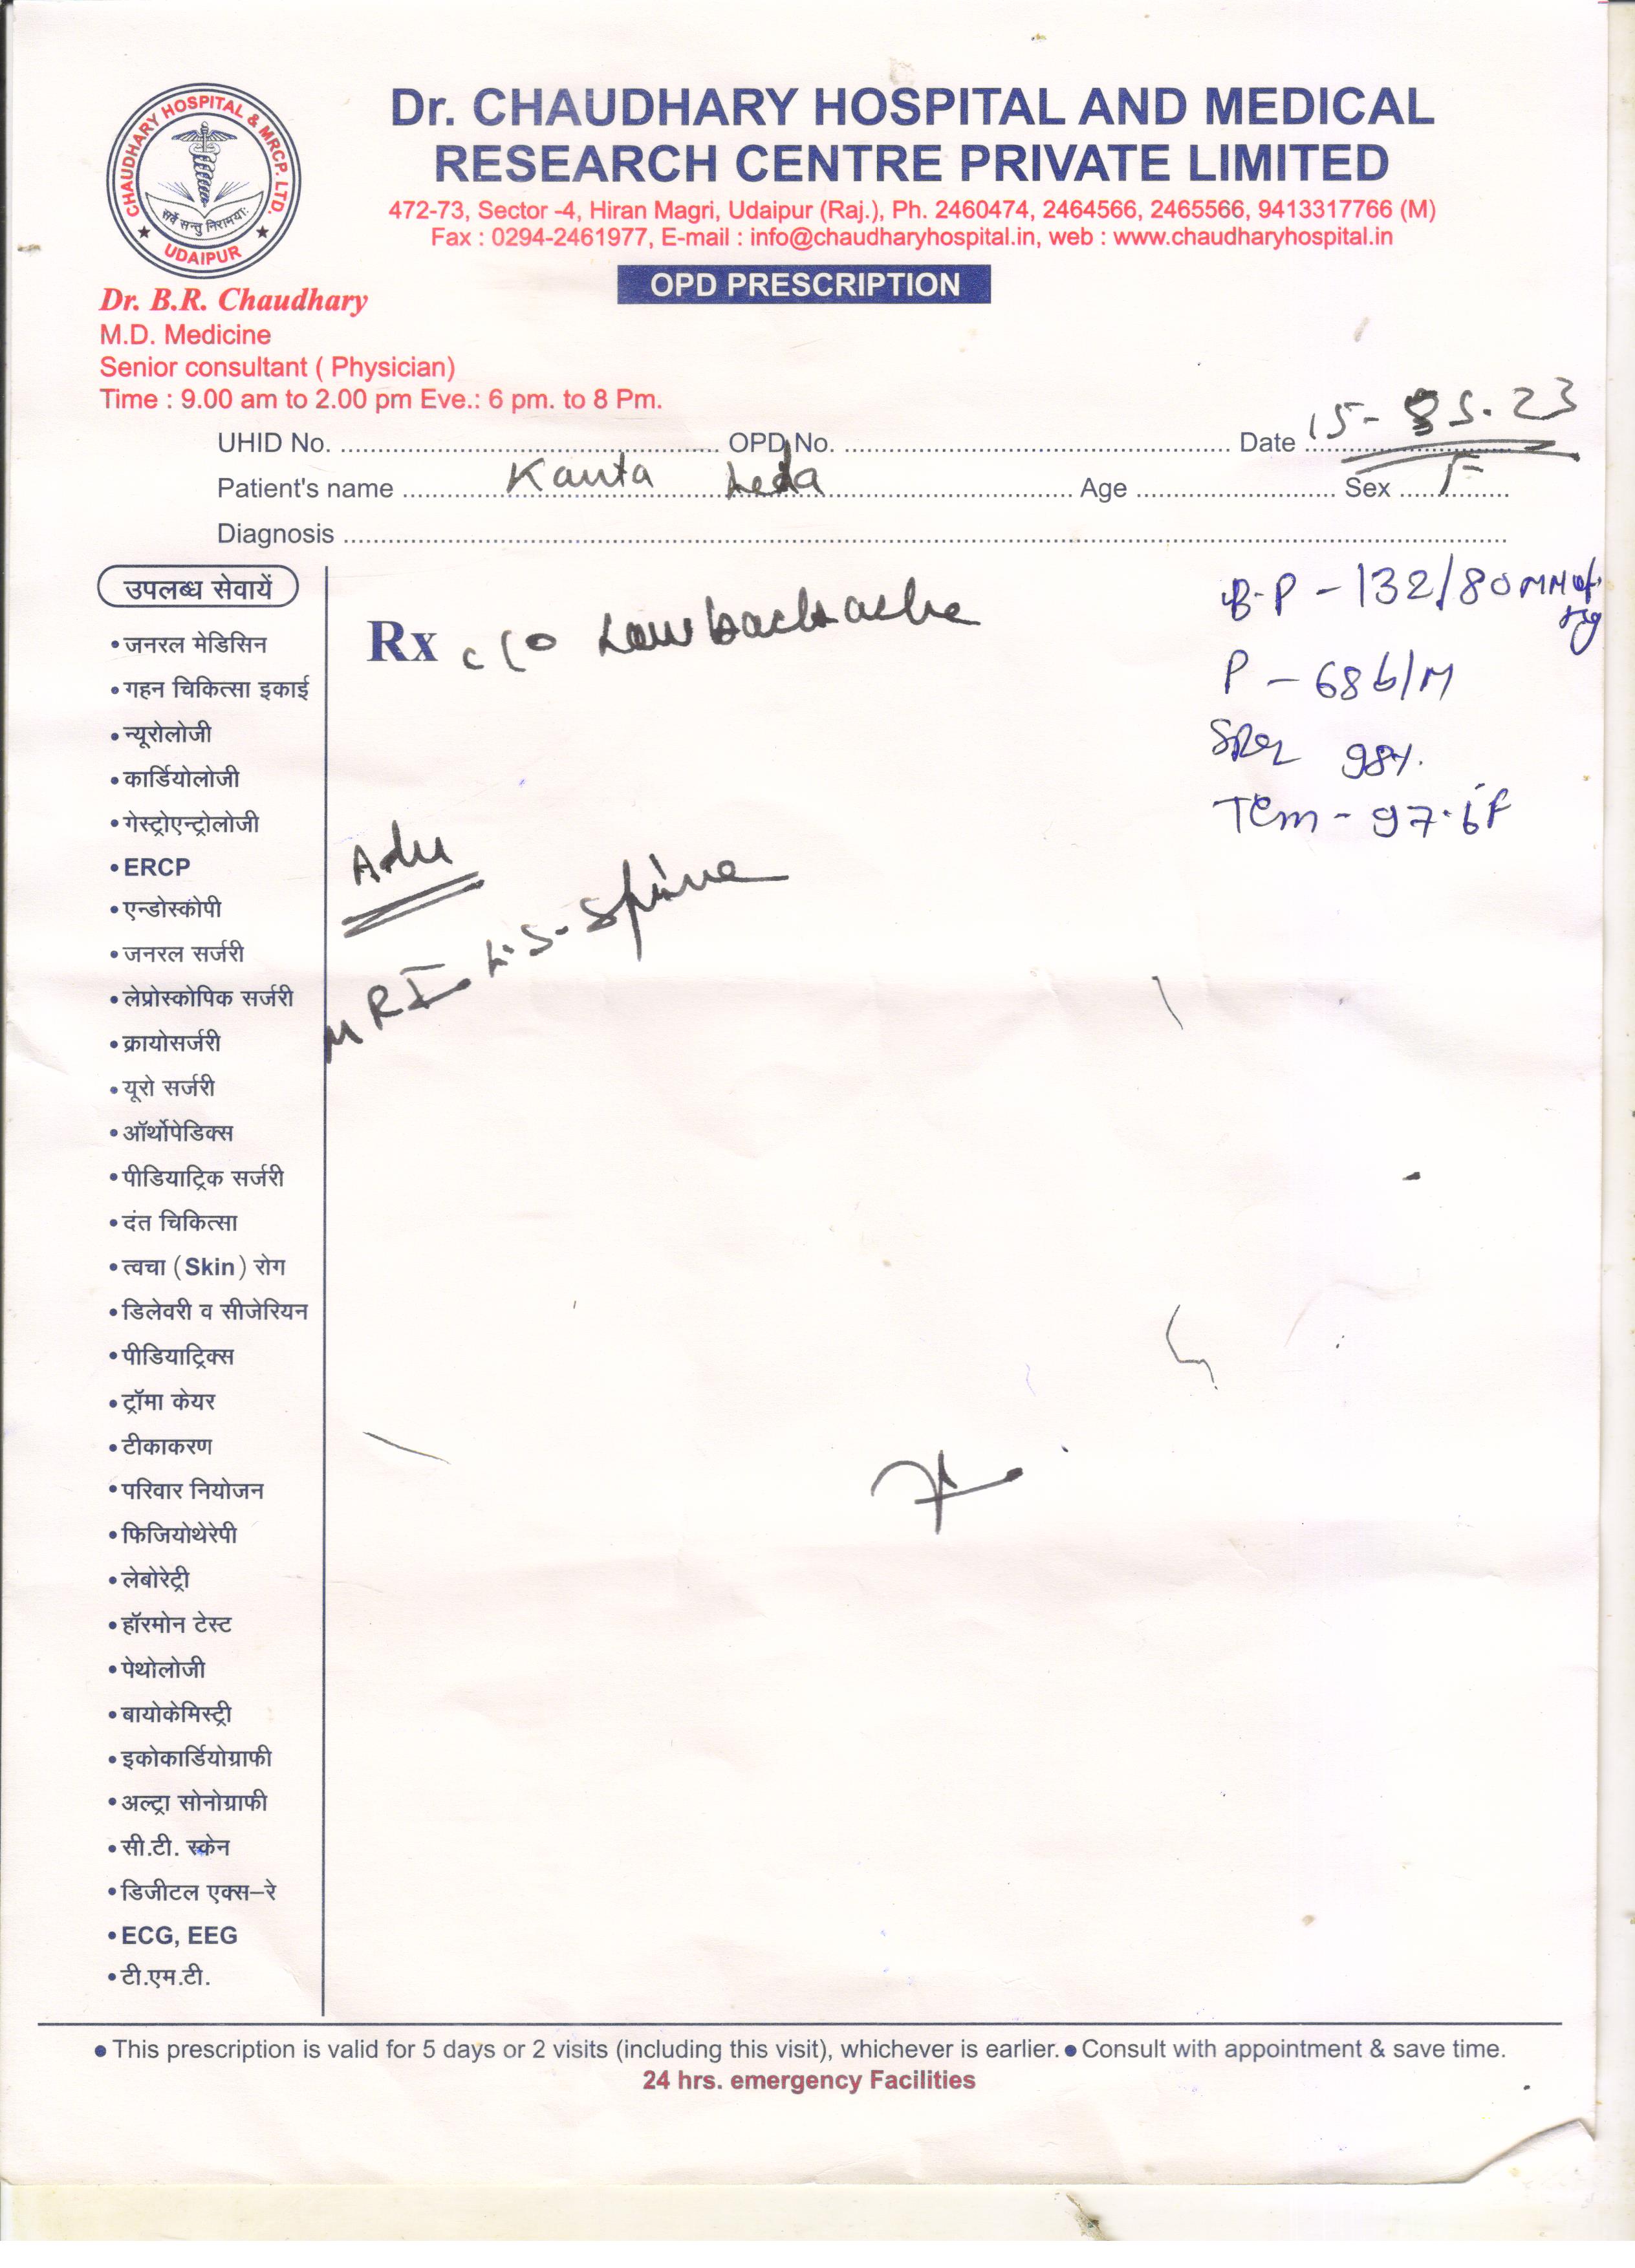 CHAUDHARY HOSPITAL & MRCP. LTD.
सर्वे सन्तु निरामयाः
UDAIPUR
Dr. CHAUDHARY HOSPITAL AND MEDICAL
RESEARCH CENTRE PRIVATE LIMITED
472-73, Sector -4, Hiran Magri, Udaipur (Raj.), Ph. 2460474, 2464566, 2465566, 9413317766 (M)
Fax : 0294-2461977, E-mail : info@chaudharyhospital.in, web : www.chaudharyhospital.in
OPD PRESCRIPTION
Dr. B.R. Chaudhary
M.D. Medicine
Senior consultant ( Physician)
Time : 9.00 am to 2.00 pm Eve.: 6 pm. to 8 Pm.
UHID No. OPD No. Date 15- 05.23
Patient's name Kanta Age Sex F
Diagnosis
उपलब्ध सेवायें
• जनरल मेडिसिन
• गहन चिकित्सा इकाई
• न्यूरोलोजी
• कार्डियोलोजी
• गेस्ट्रोएन्ट्रोलोजी
• ERCP
• एन्डोस्कोपी
• जनरल सर्जरी
• लेप्रोस्कोपिक सर्जरी
• क्रायोसर्जरी
• यूरो सर्जरी
• ऑर्थोपेडिक्स
• पीडियाट्रिक सर्जरी
• दंत चिकित्सा
• त्वचा (Skin) रोग
• डिलेवरी व सीजेरियन
• पीडियाट्रिक्स
• ट्रॉमा केयर
• टीकाकरण
• परिवार नियोजन
• फिजियोथेरेपी
• लेबोरेट्री
• हॉरमोन टेस्ट
• पेथोलोजी
• बायोकेमिस्ट्री
• इकोकार्डियोग्राफी
• अल्ट्रा सोनोग्राफी
• सी.टी. स्केन
• डिजीटल एक्स-रे
• ECG, EEG
• टी.एम.टी.
Rx c/o Low backache
B.P - 132/80 MM of
Hg
P - 68 b/M
SPO2 98%.
Tem - 97.6°F
Adv
MRI - L.S. Spine
• This prescription is valid for 5 days or 2 visits (including this visit), whichever is earlier. • Consult with appointment & save time.
24 hrs. emergency Facilities